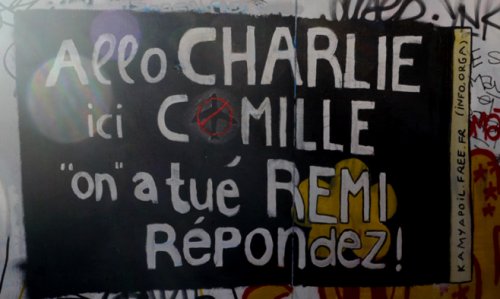 Allo CHARLIE
ici CAMILLE
"on" a tué REMI
RéPONdez!
KAMYAPOIL.FREE.FR (INFO.ORGA)